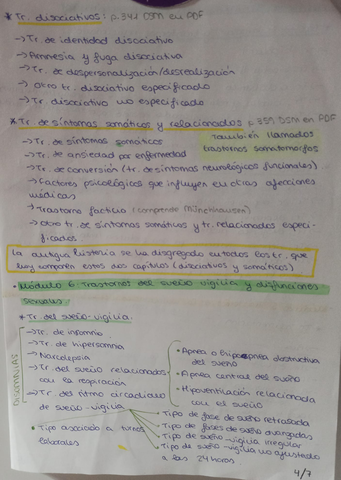 * Tr. disociativos: p.341 DSM en PDF
→ Tr. de identidad disociativo
→ Amnesia y fuga disociativa
→ Tr. de despersonalización/desrealización
→ Otro tr. disociativo especificado
→ Tr. disociativo no especificado
* Tr. de síntomas somáticos y relacionados p.359 DSM en PDF
También llamados
trastornos somatomorfos
→ Tr. de síntomas somáticos
→ Tr. de ansiedad por enfermedad
→ Tr. de conversión (tr. de síntomas neurológicos funcionales)
→ Factores psicológicos que influyen en otras afecciones
médicas
→ Trastorno facticio (comprende Münchhausen)
→ Otro tr. de síntomas somáticos y tr. relacionados especi-
ficados
La antigua histeria se ha disgregado en todos los tr. que
hoy componen estos dos capítulos (disociativos y somáticos)
• Módulo 6: Trastornos del sueño vigilia y disfunciones
sexuales
* Tr. del sueño-vigilia:
DISOMNIAS
→ Tr. de insomnio
→ Tr. de hipersomnia
→ Narcolepsia
→ Tr. del sueño relacionados
con la respiración
• Apnea o hipoapnea obstructiva
del sueño
• Apnea central del sueño
• Hipoventilación relacionada
con el sueño
→ Tr. del ritmo circadiano
de sueño-vigilia
• Tipo de fase de sueño retrasada
• Tipo de fases de sueño avanzadas
• Tipo de sueño-vigilia irregular
• Tipo de sueño-vigilia no ajustado
a las 24 horas
• Tipo asociado a turnos
laborales
4/7